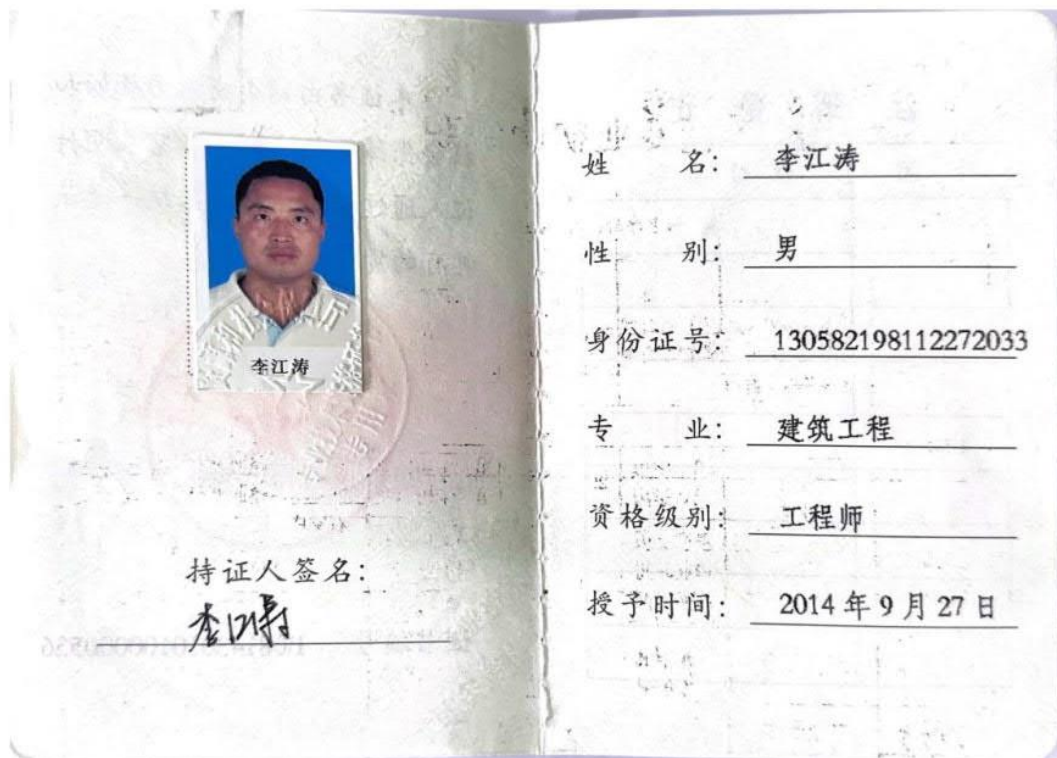 李江涛
持证人签名:
姓 名: 李江涛
性 别: 男
身份证号: 130582198112272033
专 业: 建筑工程
资格级别: 工程师
授予时间: 2014 年 9 月 27 日